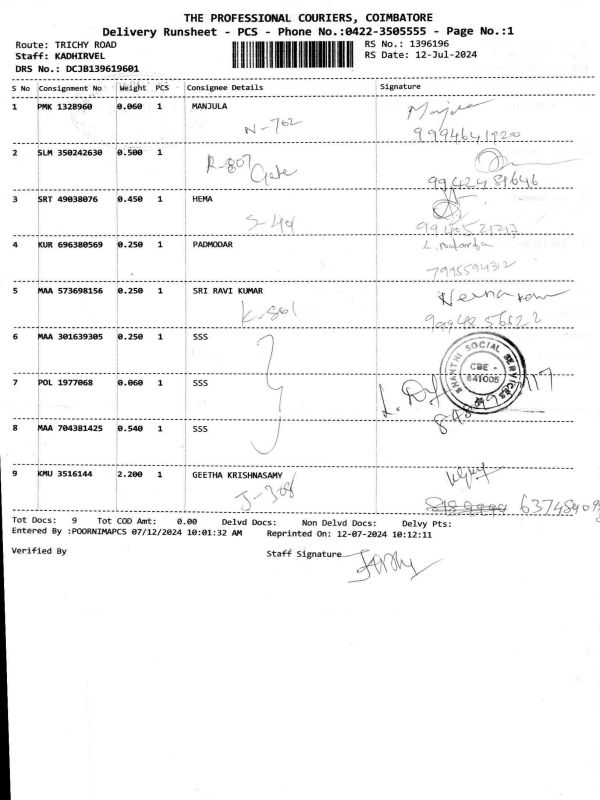 THE PROFESSIONAL COURIERS, COIMBATORE
Delivery Runsheet - PCS - Phone No.:0422-3505555 - Page No.:1
Route: TRICHY ROAD RS No.: 1396196
Staff: KADHIRVEL RS Date: 12-Jul-2024
DRS No.: DCJB139619601
S No Consignment No Weight PCS Consignee Details Signature
1 PMK 1328960 0.060 1 MANJULA
N-702
2 SLM 350242630 0.500 1
R-807 Gate
3 SRT 49038076 0.450 1 HEMA
4 KUR 696380569 0.250 1 PADMODAR
7995594312
5 MAA 573698156 0.250 1 SRI RAVI KUMAR
K-801
6 MAA 301639305 0.250 1 SSS
SHANTHI SOCIAL SERVICES
CBE -
641005
7 POL 1977068 0.060 1 SSS
8 MAA 704381425 0.540 1 SSS
9 KMU 3516144 2.200 1 GEETHA KRISHNASAMY
J-308
Tot Docs: 9 Tot COD Amt: 0.00 Delvd Docs: Non Delvd Docs: Delvy Pts:
Entered By :POORNIMAPCS 07/12/2024 10:01:32 AM Reprinted On: 12-07-2024 10:12:11
Verified By Staff Signature